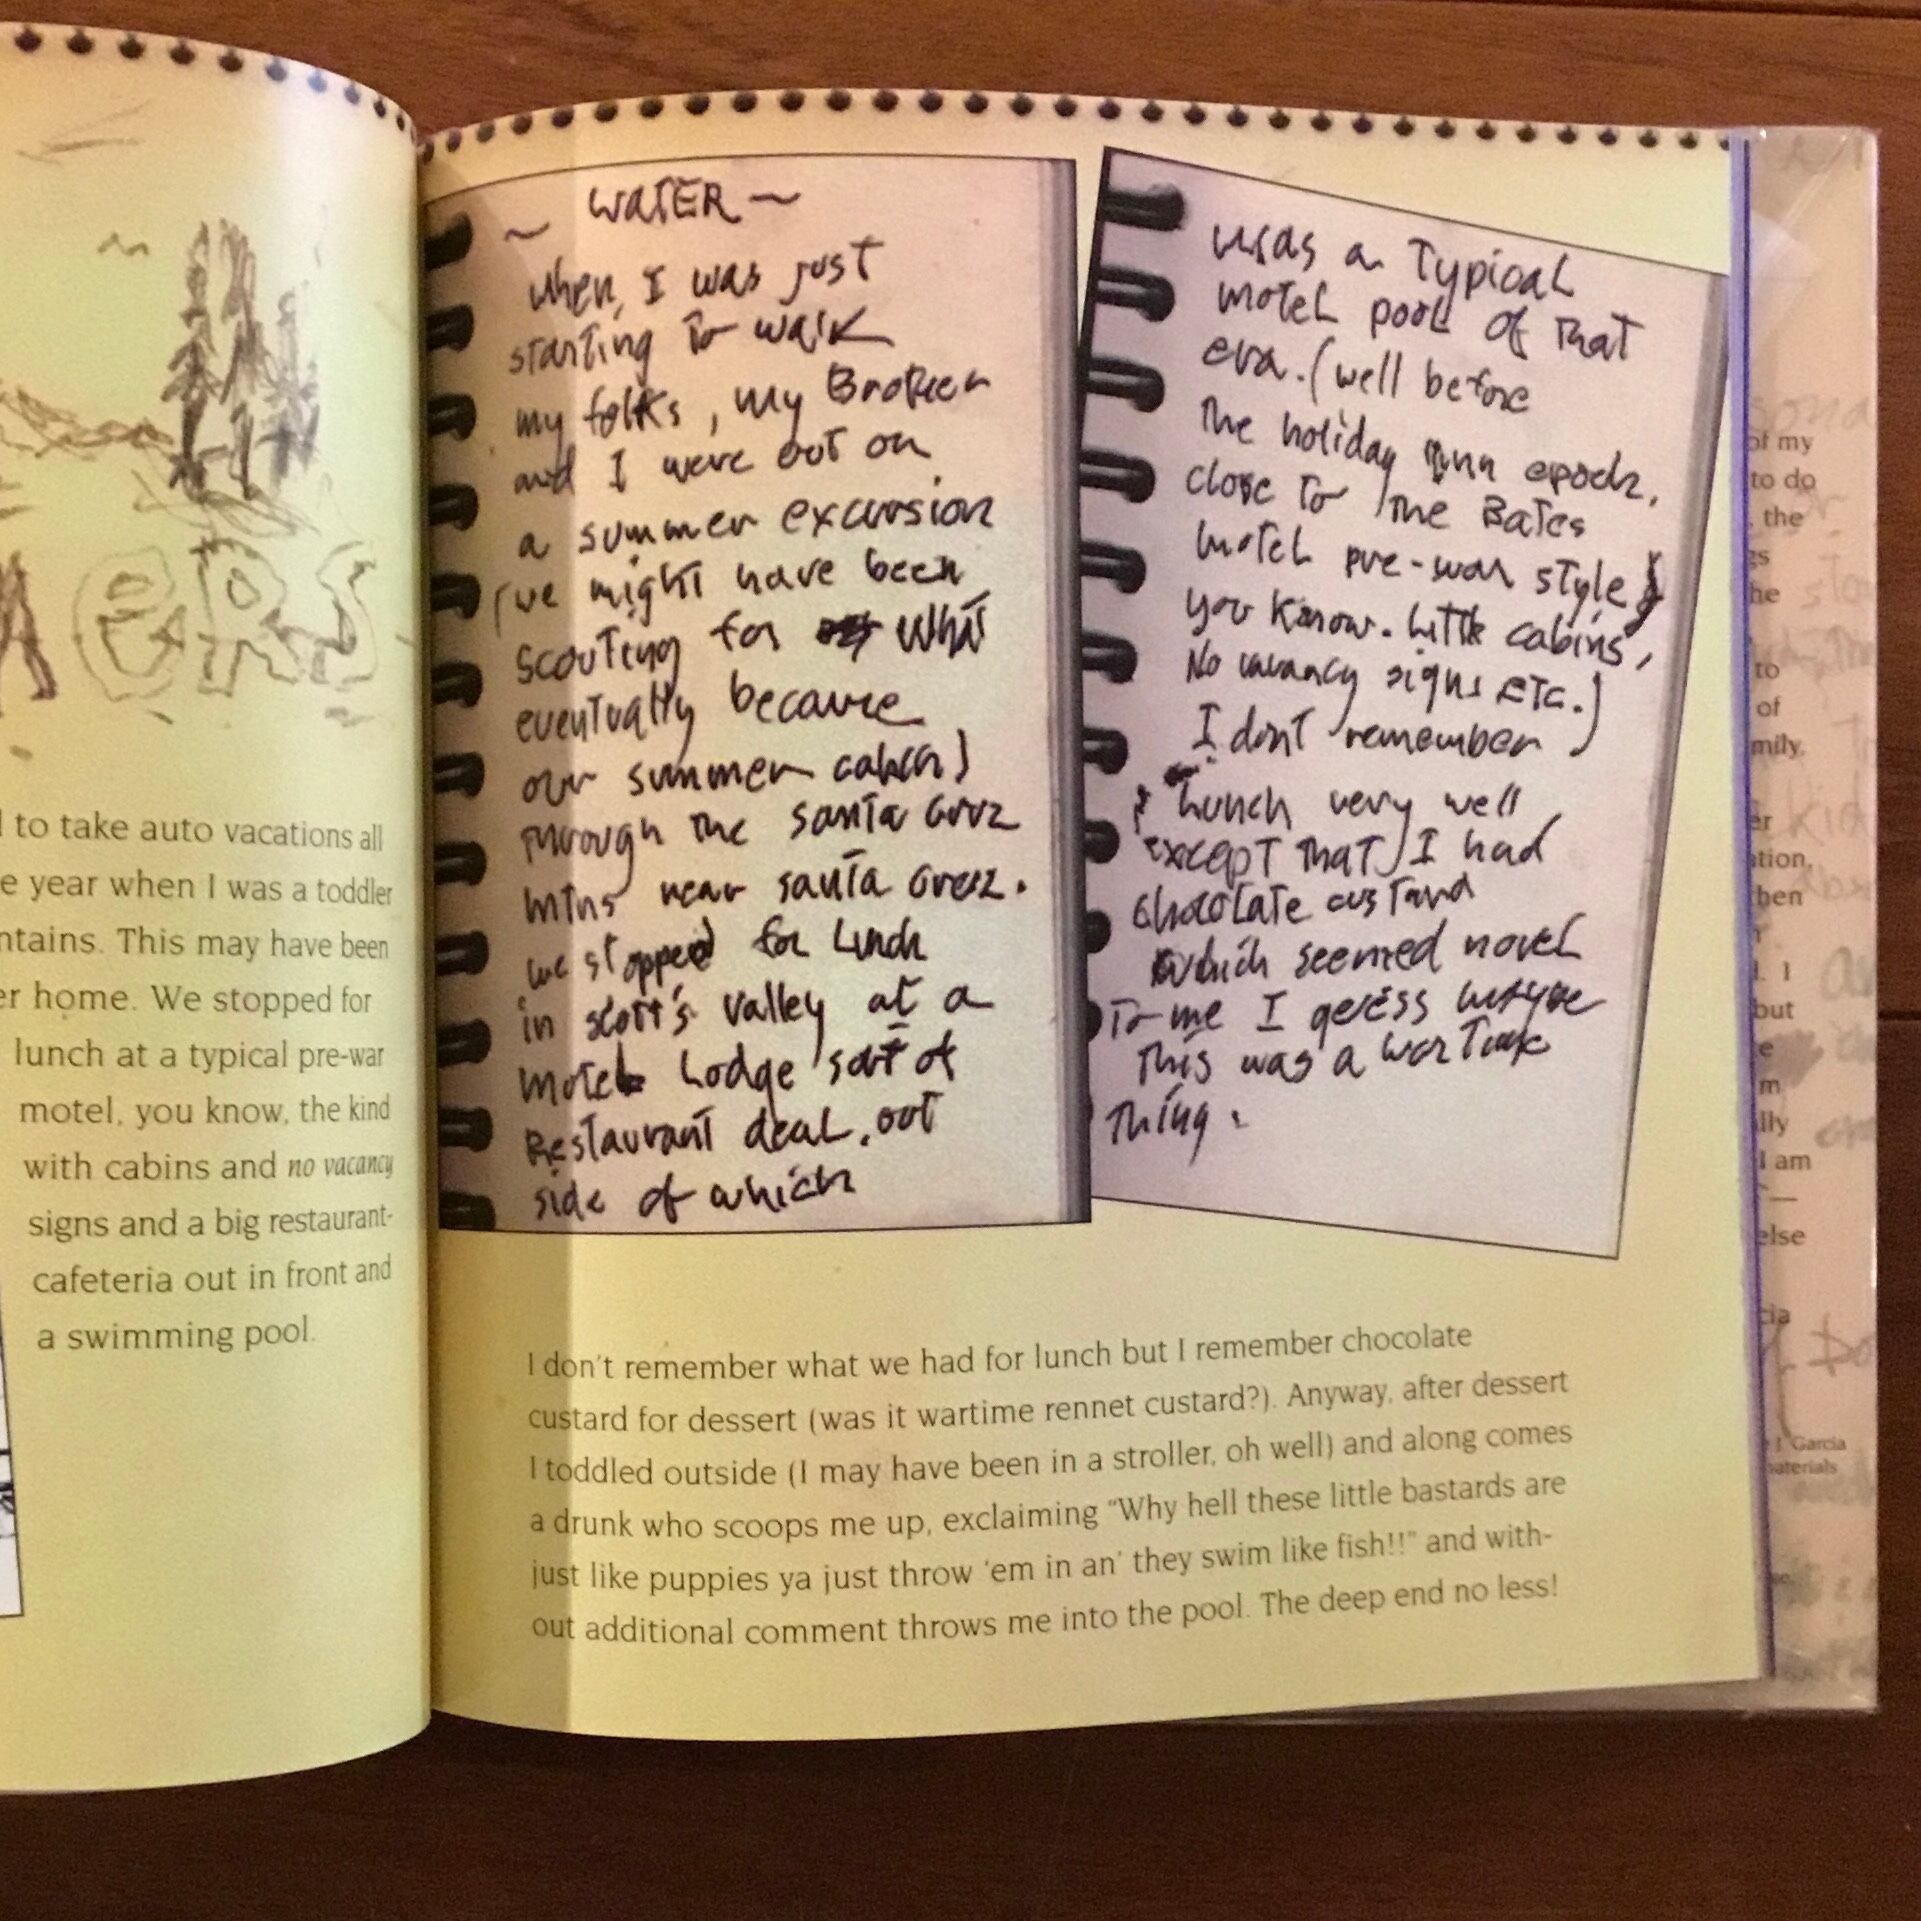 ERS
l to take auto vacations all
e year when I was a toddler
ntains. This may have been
er home. We stopped for
lunch at a typical pre-war
motel, you know, the kind
with cabins and no vacancy
signs and a big restaurant-
cafeteria out in front and
a swimming pool.
~ WATER ~
when, I was just
starting to walk
my folks, my Brother
and I were out on
a summer excursion
(we might have been
scouting for what
eventually became
our summer cabin)
through the santa Cruz
mtns near santa Cruz.
we stopped for Lunch
in scott's valley at a
motel Lodge sort of
Restaurant deal, out
side of which
was a Typical
motel pool of that
era. (well before
the holiday Inn epoch,
close to the Bates
motel pre-war style
you know. Little cabins,
No vacancy signs etc.)
I dont remember
Lunch very well
except that I had
chocolate custard
which seemed novel
To me I guess maybe
this was a war Time
thing.
I don't remember what we had for lunch but I remember chocolate
custard for dessert (was it wartime rennet custard?). Anyway, after dessert
I toddled outside (I may have been in a stroller, oh well) and along comes
a drunk who scoops me up, exclaiming "Why hell these little bastards are
just like puppies ya just throw 'em in an' they swim like fish!!" and with-
out additional comment throws me into the pool. The deep end no less!
of my
to do
, the
gs
he
to
of
mily.
er
ation,
hen
. I
but
e
m
lly
I am
—
else
cia
J. Garcia
materials